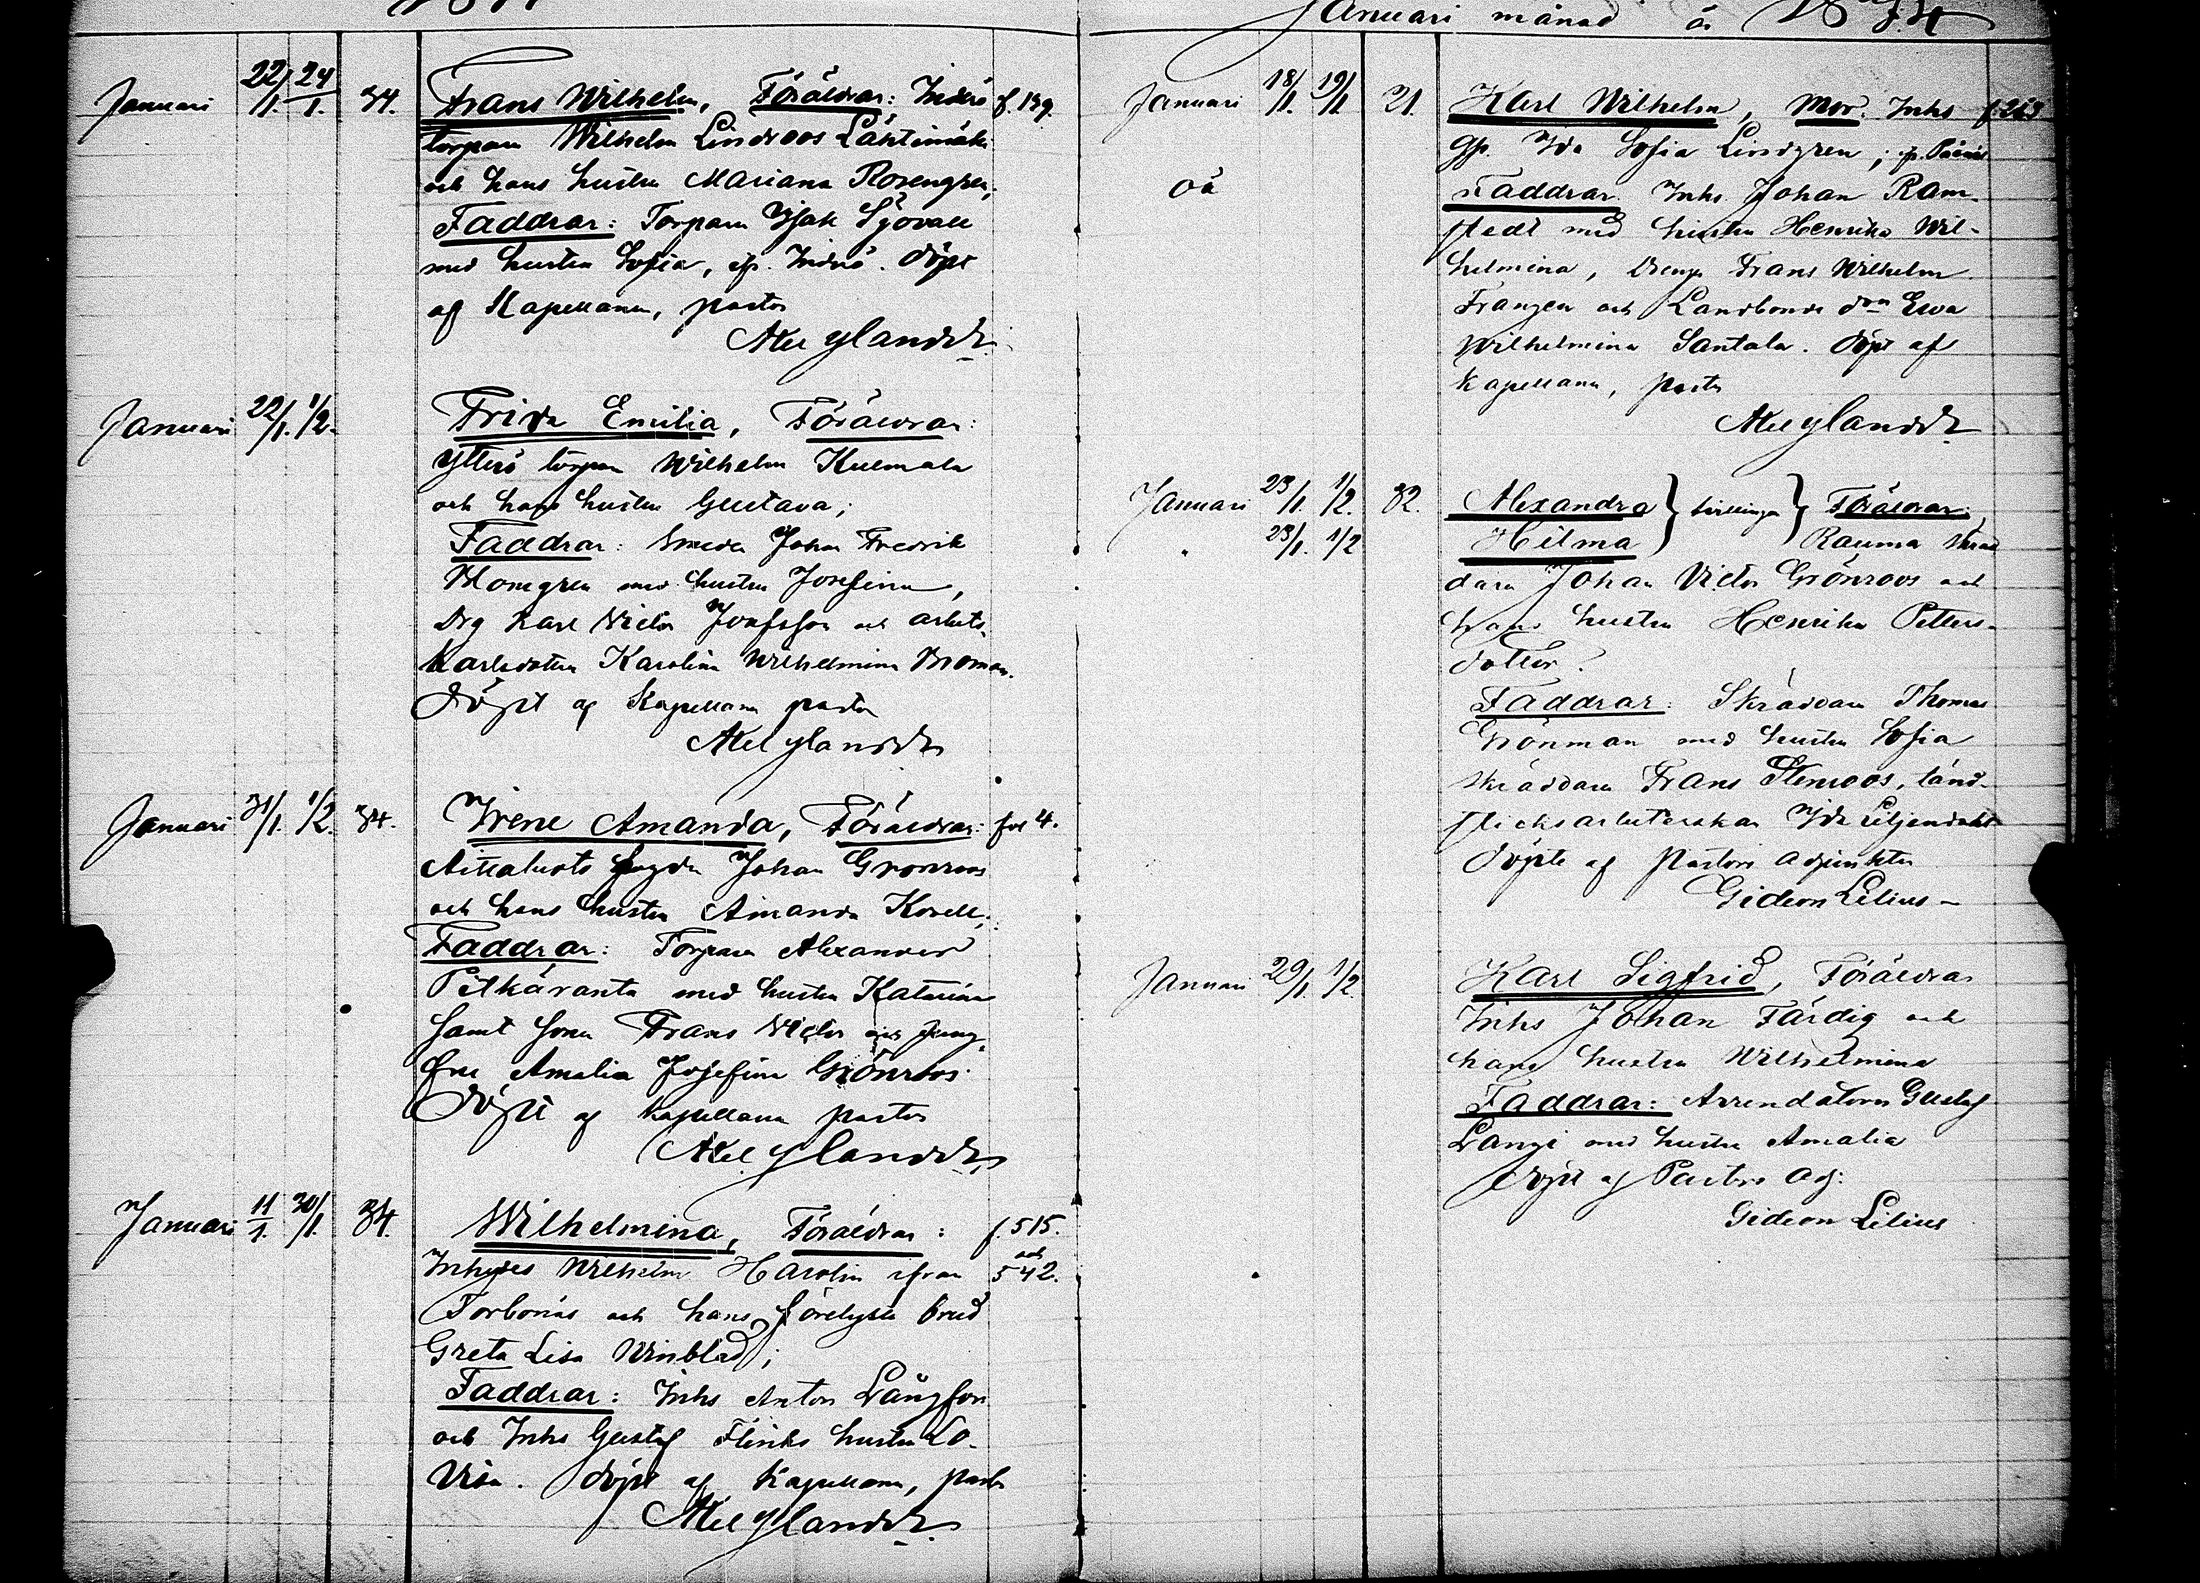 Januari månad år
Januari 22/1. 24/1. 34. Frans Wilhelm, Föräldrar: Inderö f. 139.
torparn Wilhelm Lindroos Lähteenmäki
och hans hustru Mariana Rosengren;
Faddrar: Torparn Isak Sjövall
med hustru Sofia, fr. Inderö. Döpt
af Kapellanen, pastor
Axel Ylander
Januari 22/1. 1/2. Frida Emilia, Föräldrar:
Ytterö torparn Wilhelm Kulmala
och hans hustru Gustava;
Faddrar: Smeden Johan Fredrik
Blomgren med hustru Josefina,
Drg Karl Victor Josefsson och arbets-
karlsdottren Karolina Wilhelmina Broman.
Döpt af Kapellanen pastor
Axel Ylander
Januari 31/1. 1/2. 34. Irene Amanda, Föräldrar: fol 4.
Aittaluoto fogden Johan Grönroos
och hans hustru Amanda Korell;
Faddrar: Torparn Alexander
Pitkäranta med hustru Katarina
samt sonen Frans Victor och jung-
fru Amalia Josefina Grönroos.
Döpt af Kapellanen pastor
Axel Ylander
Januari 11/1. 30/1. 34. Wilhelmina, Föräldrar: f. 515.
Inhyses Wilhelm Harolin ifrån och 542.
Torbonäs och hans förelysta brud
Greta Lisa Winblad;
Faddrar: Inhs Anton Långfors
och Inhs Gustaf Flinks hustru Lo-
visa. Döpt af Kapellanen, pastor
Axel Ylander
Januari 18/1. 19/1. 21. Karl Wilhelm, Mor: Inhs f. 263
Gp. Ida Sofia Lindgren;
oä Faddrar Inhs Johan Ram-
stedt med hustru Henrika Wil-
helmina, Drengen Frans Wilhelm
Franzen och Landbonde dtrn Ewa
Wilhelmina Santala. Döpt af
Kapellanen, pastor
Axel Ylander
Januari 23/1. 1/2. 32. Alexandra } tvillingar } Föräldrar:
" 23/1. 1/2 Hilma Rauma skräd
darn Johan Victor Grönroos och
hans hustru Henrika Petters-
dotter.
Faddrar: Skräddarn Thomas
Grönman med hustru Sofia
skräddarn Frans Stenroos, tänd-
sticksarbeterskan Ida Liljendahl
Döpte af Pastors Adjunkten
Gideon Lilius
Januari 29/1. 1/2 Karl Sigfrid, Föräldrar
Inhs Johan Färdig och
hans hustru Wilhelmina
Faddrar: Arrendatorn Gustaf
Langi med hustru Amalia
Döpt af Pastors Adj:
Gideon Lilius